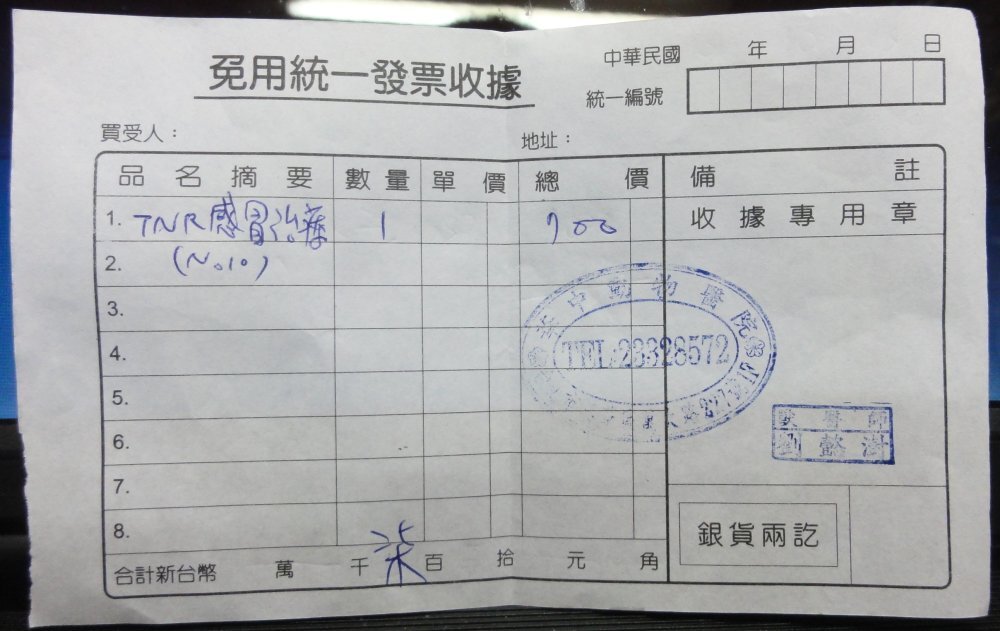 免用統一發票收據
中華民國 年 月 日
統一編號
買受人：
地址：
品名摘要 數量 單價 總價 備註
1. TNR感冒治療 1 700
收據專用章
2. (No.10)
3.
4.
5.
6.
7.
8.
中動物醫院
TEL:23328572
227
獸醫師
劉懿澍
銀貨兩訖
合計新台幣 萬 千 柒 百 拾 元 角